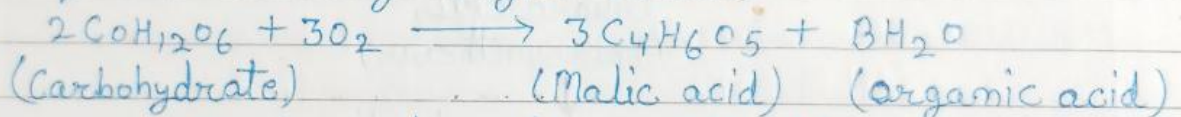 2 COH12O6 + 3O2 ⟶ 3 C4H6O5 + BH2O
(Carbohydrate) (Malic acid) (orgamic acid)